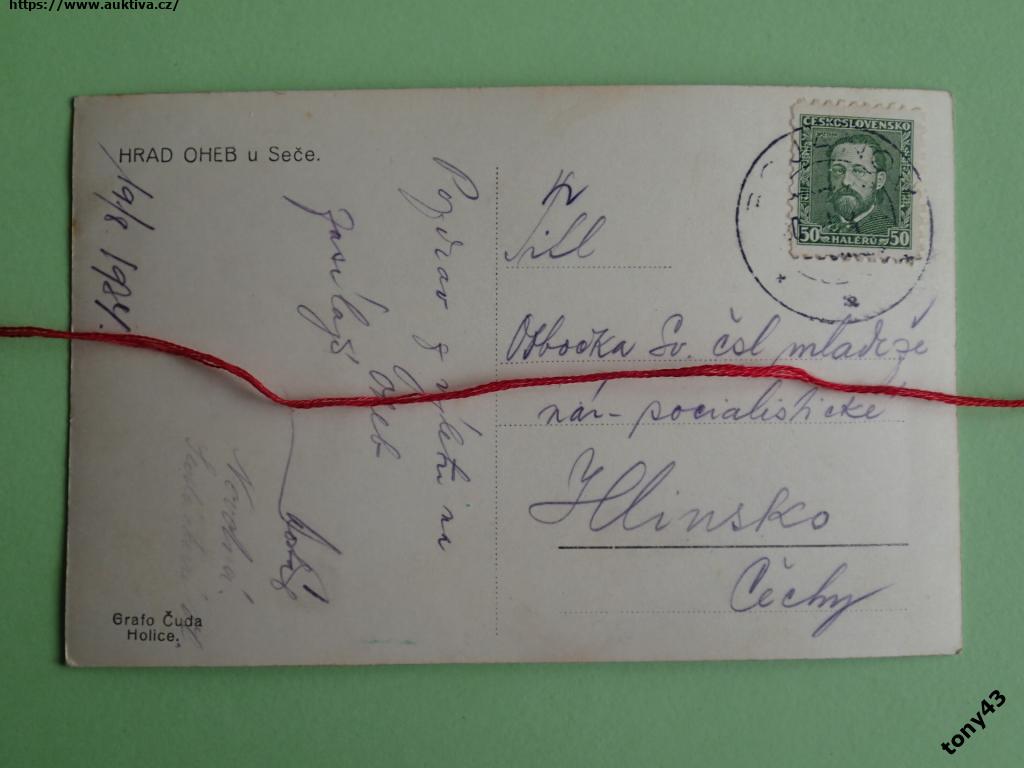 https://www.auktiva.cz/
HRAD OHEB u Seče.
19/8. 1934.
Pozdrav z výletu na
Oheb
zasílají
Novotná
Grafo Čuda
Holice.
ČESKOSLOVENSKO
50 HALÉŘŮ 50
Odbočka Sv. čsl mládeže
nár-socialistické
Hlinsko
Čechy
tony43